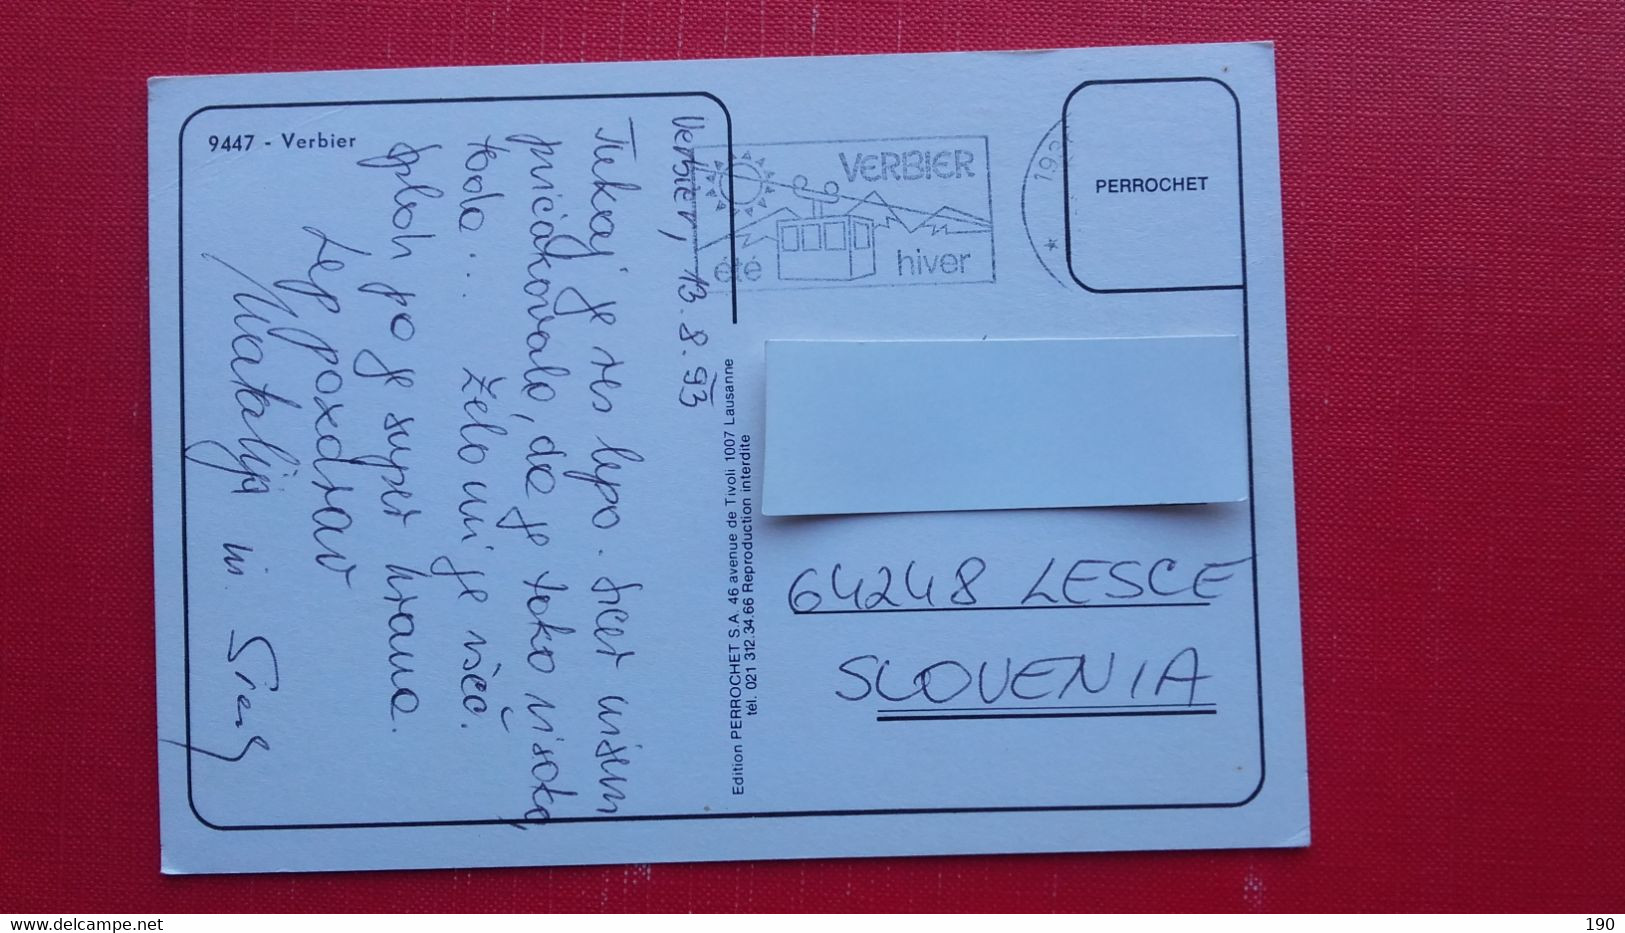 9447 - Verbier
Verbier, 13.8.93
Tukaj je res lepo. Sicer nisem
pričakovala, da je tako visoko,
toda... Želo mi je všeč.
Sploh pa je super hrana.
Lep pozdrav
Natalija in
VERBIER
été hiver
PERROCHET
Edition PERROCHET S.A. 46 avenue de Tivoli 1007 Lausanne
tél. 021 312.34.66 Reproduction interdite
64248 LESCE
SLOVENIA
www.delcampe.net
190